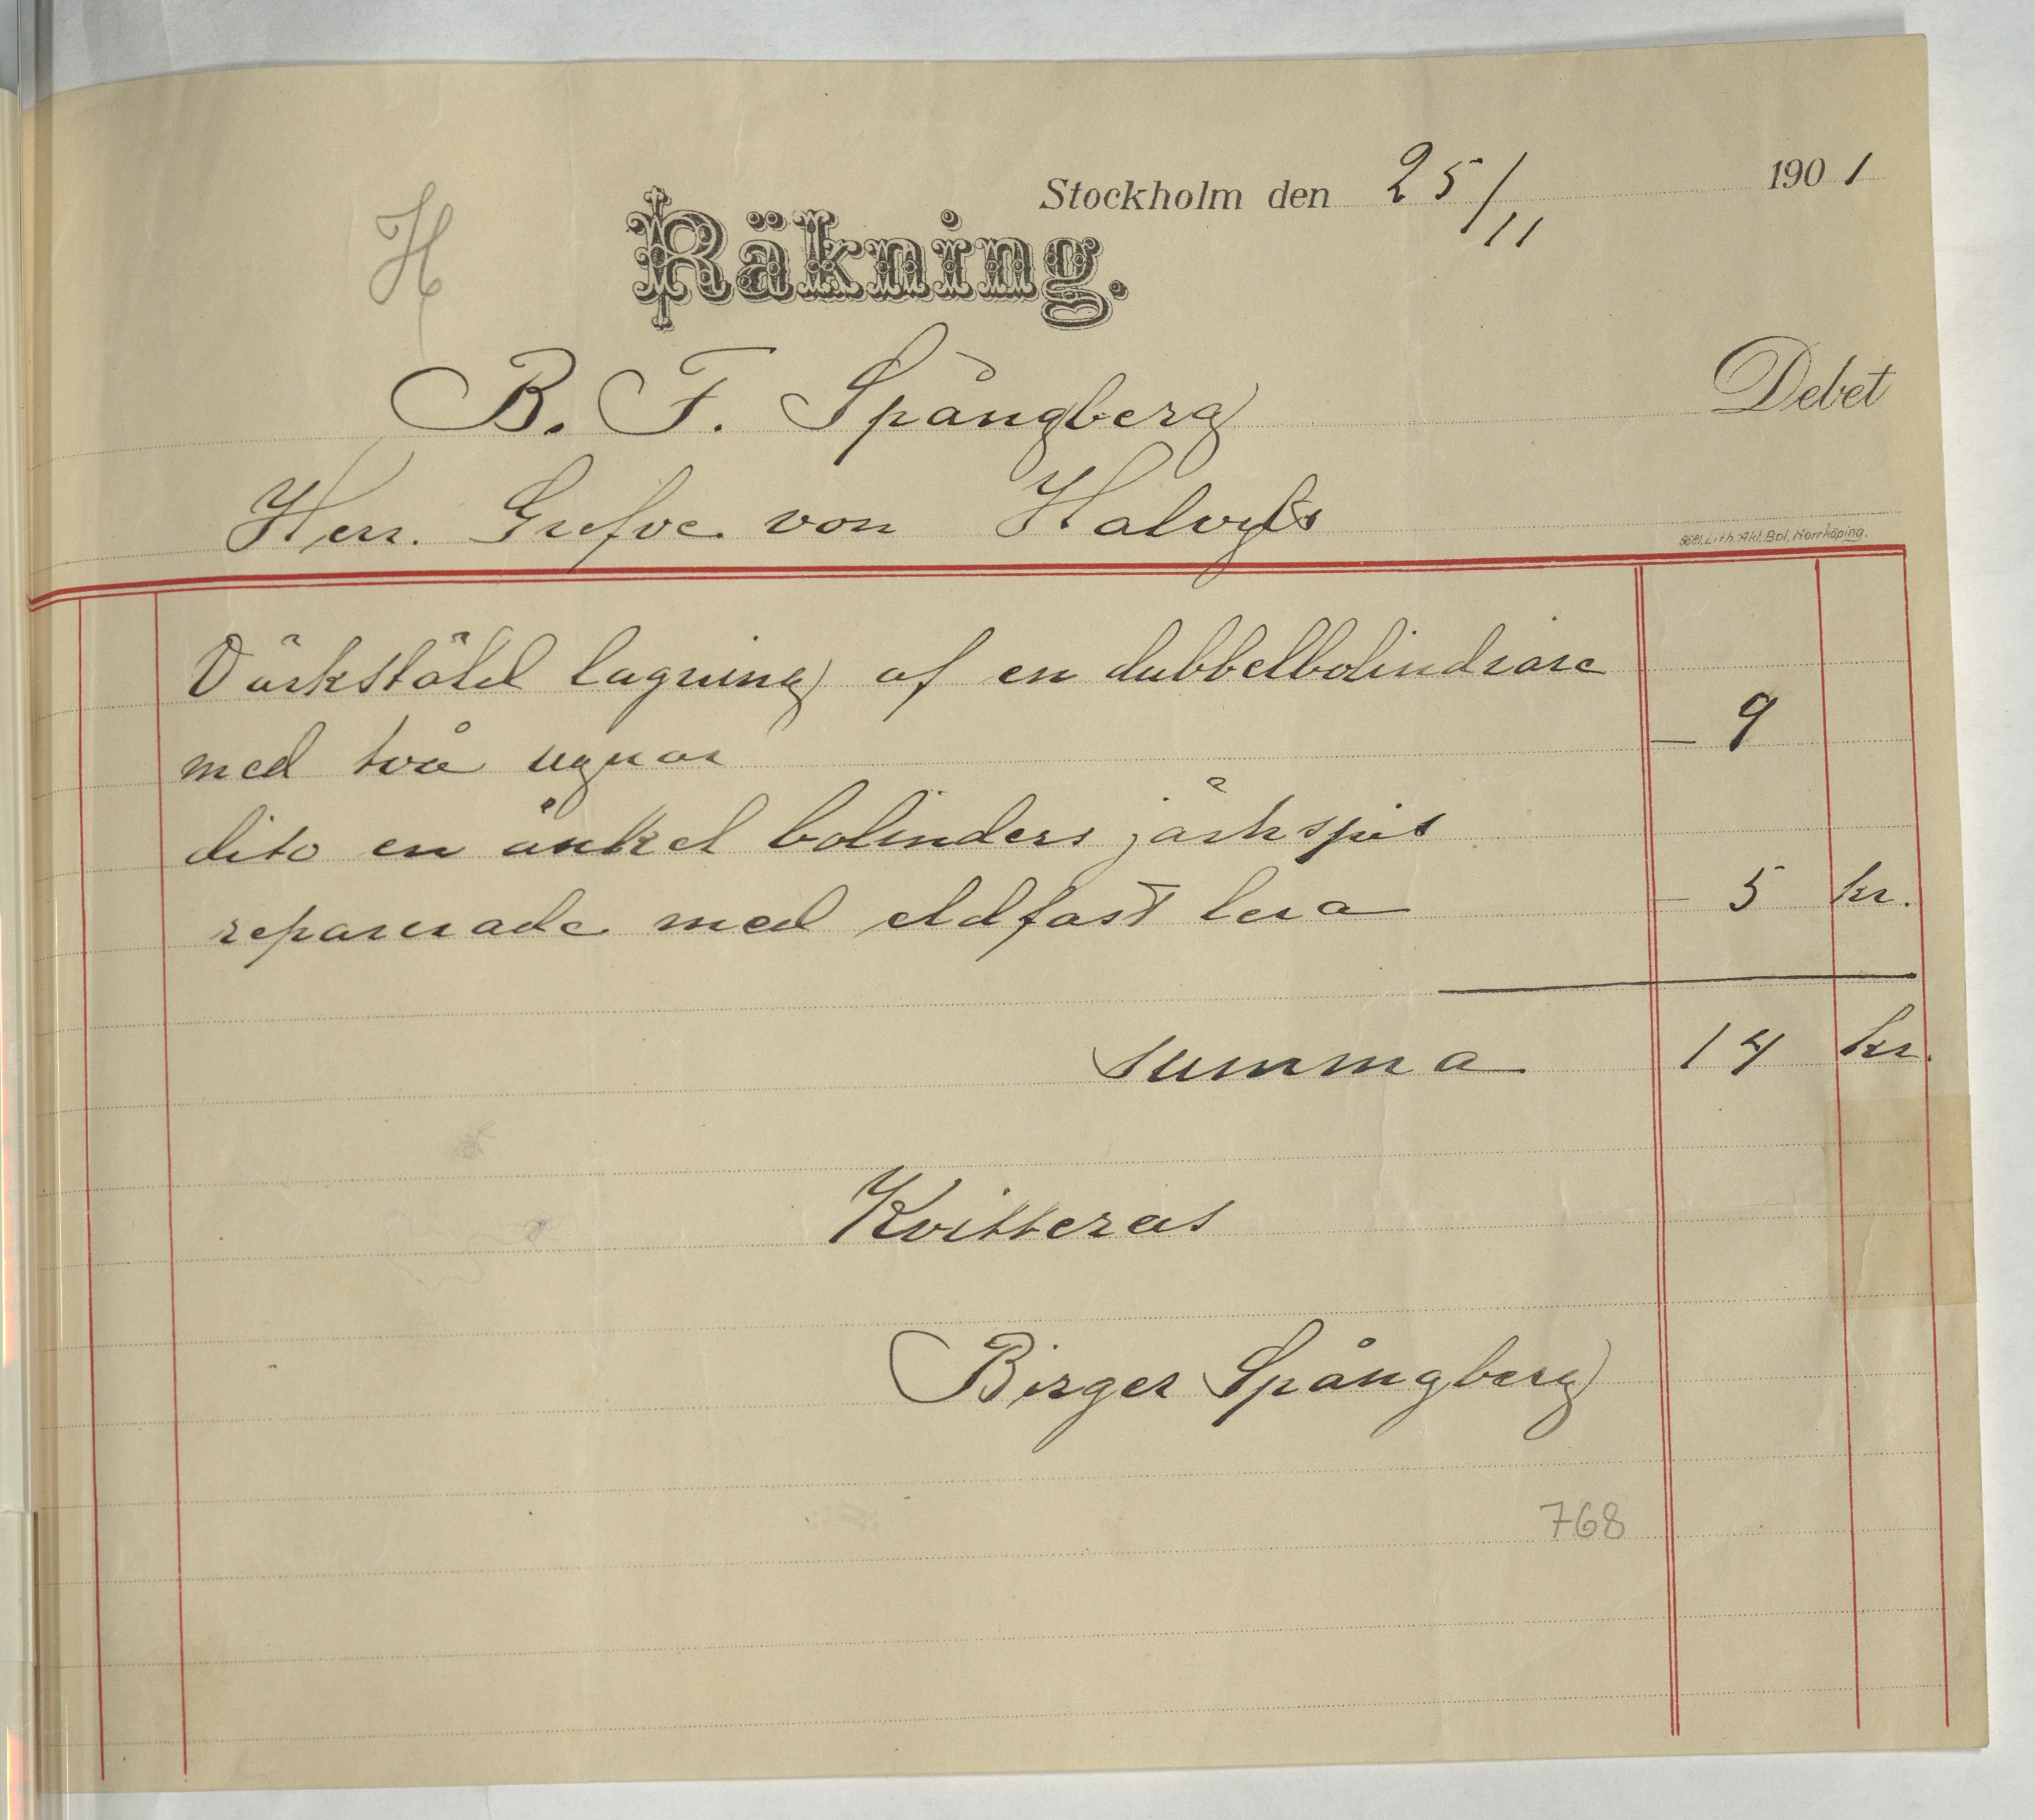 Stockholm den 25/11 1901
H
Räkning.
B. F. Spångberg Debet
Herr. Grefve von Halvyls
Lith. Akt. Bol. Norrköping.
Värkstäld lagning af en dubbelbolindrare
med två ugnar – 9
dito en änkel bolinders järnspis
reparerade med eldfast lera – 5 kr.
summa 14 kr.
Kvitteras
Birger Spångberg
768